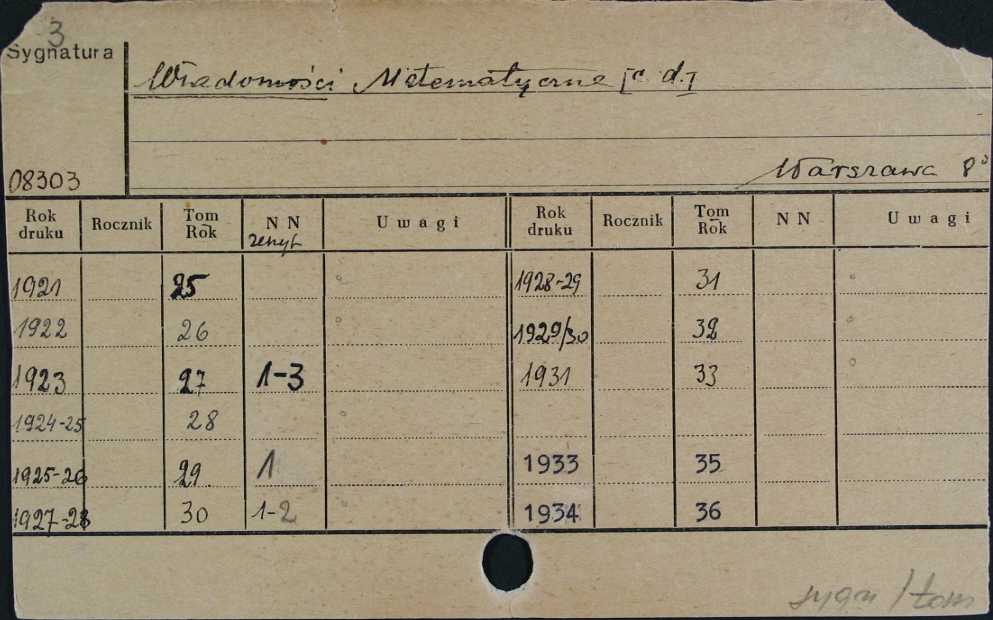 3
Sygnatura
Wiadomości Matematyczne [c. d.]
08303
Warszawa 8°
Rok druku Rocznik Tom Rok NN zeszyt Uwagi Rok druku Rocznik Tom Rok NN Uwagi
1921 25 1928-29 31
1922 26 1929/30 32
1923 27 1-3 1931 33
1924-25 28
1925-26 29 1 1933 35
1927-28 30 1-2 1934 36
sygn/tom